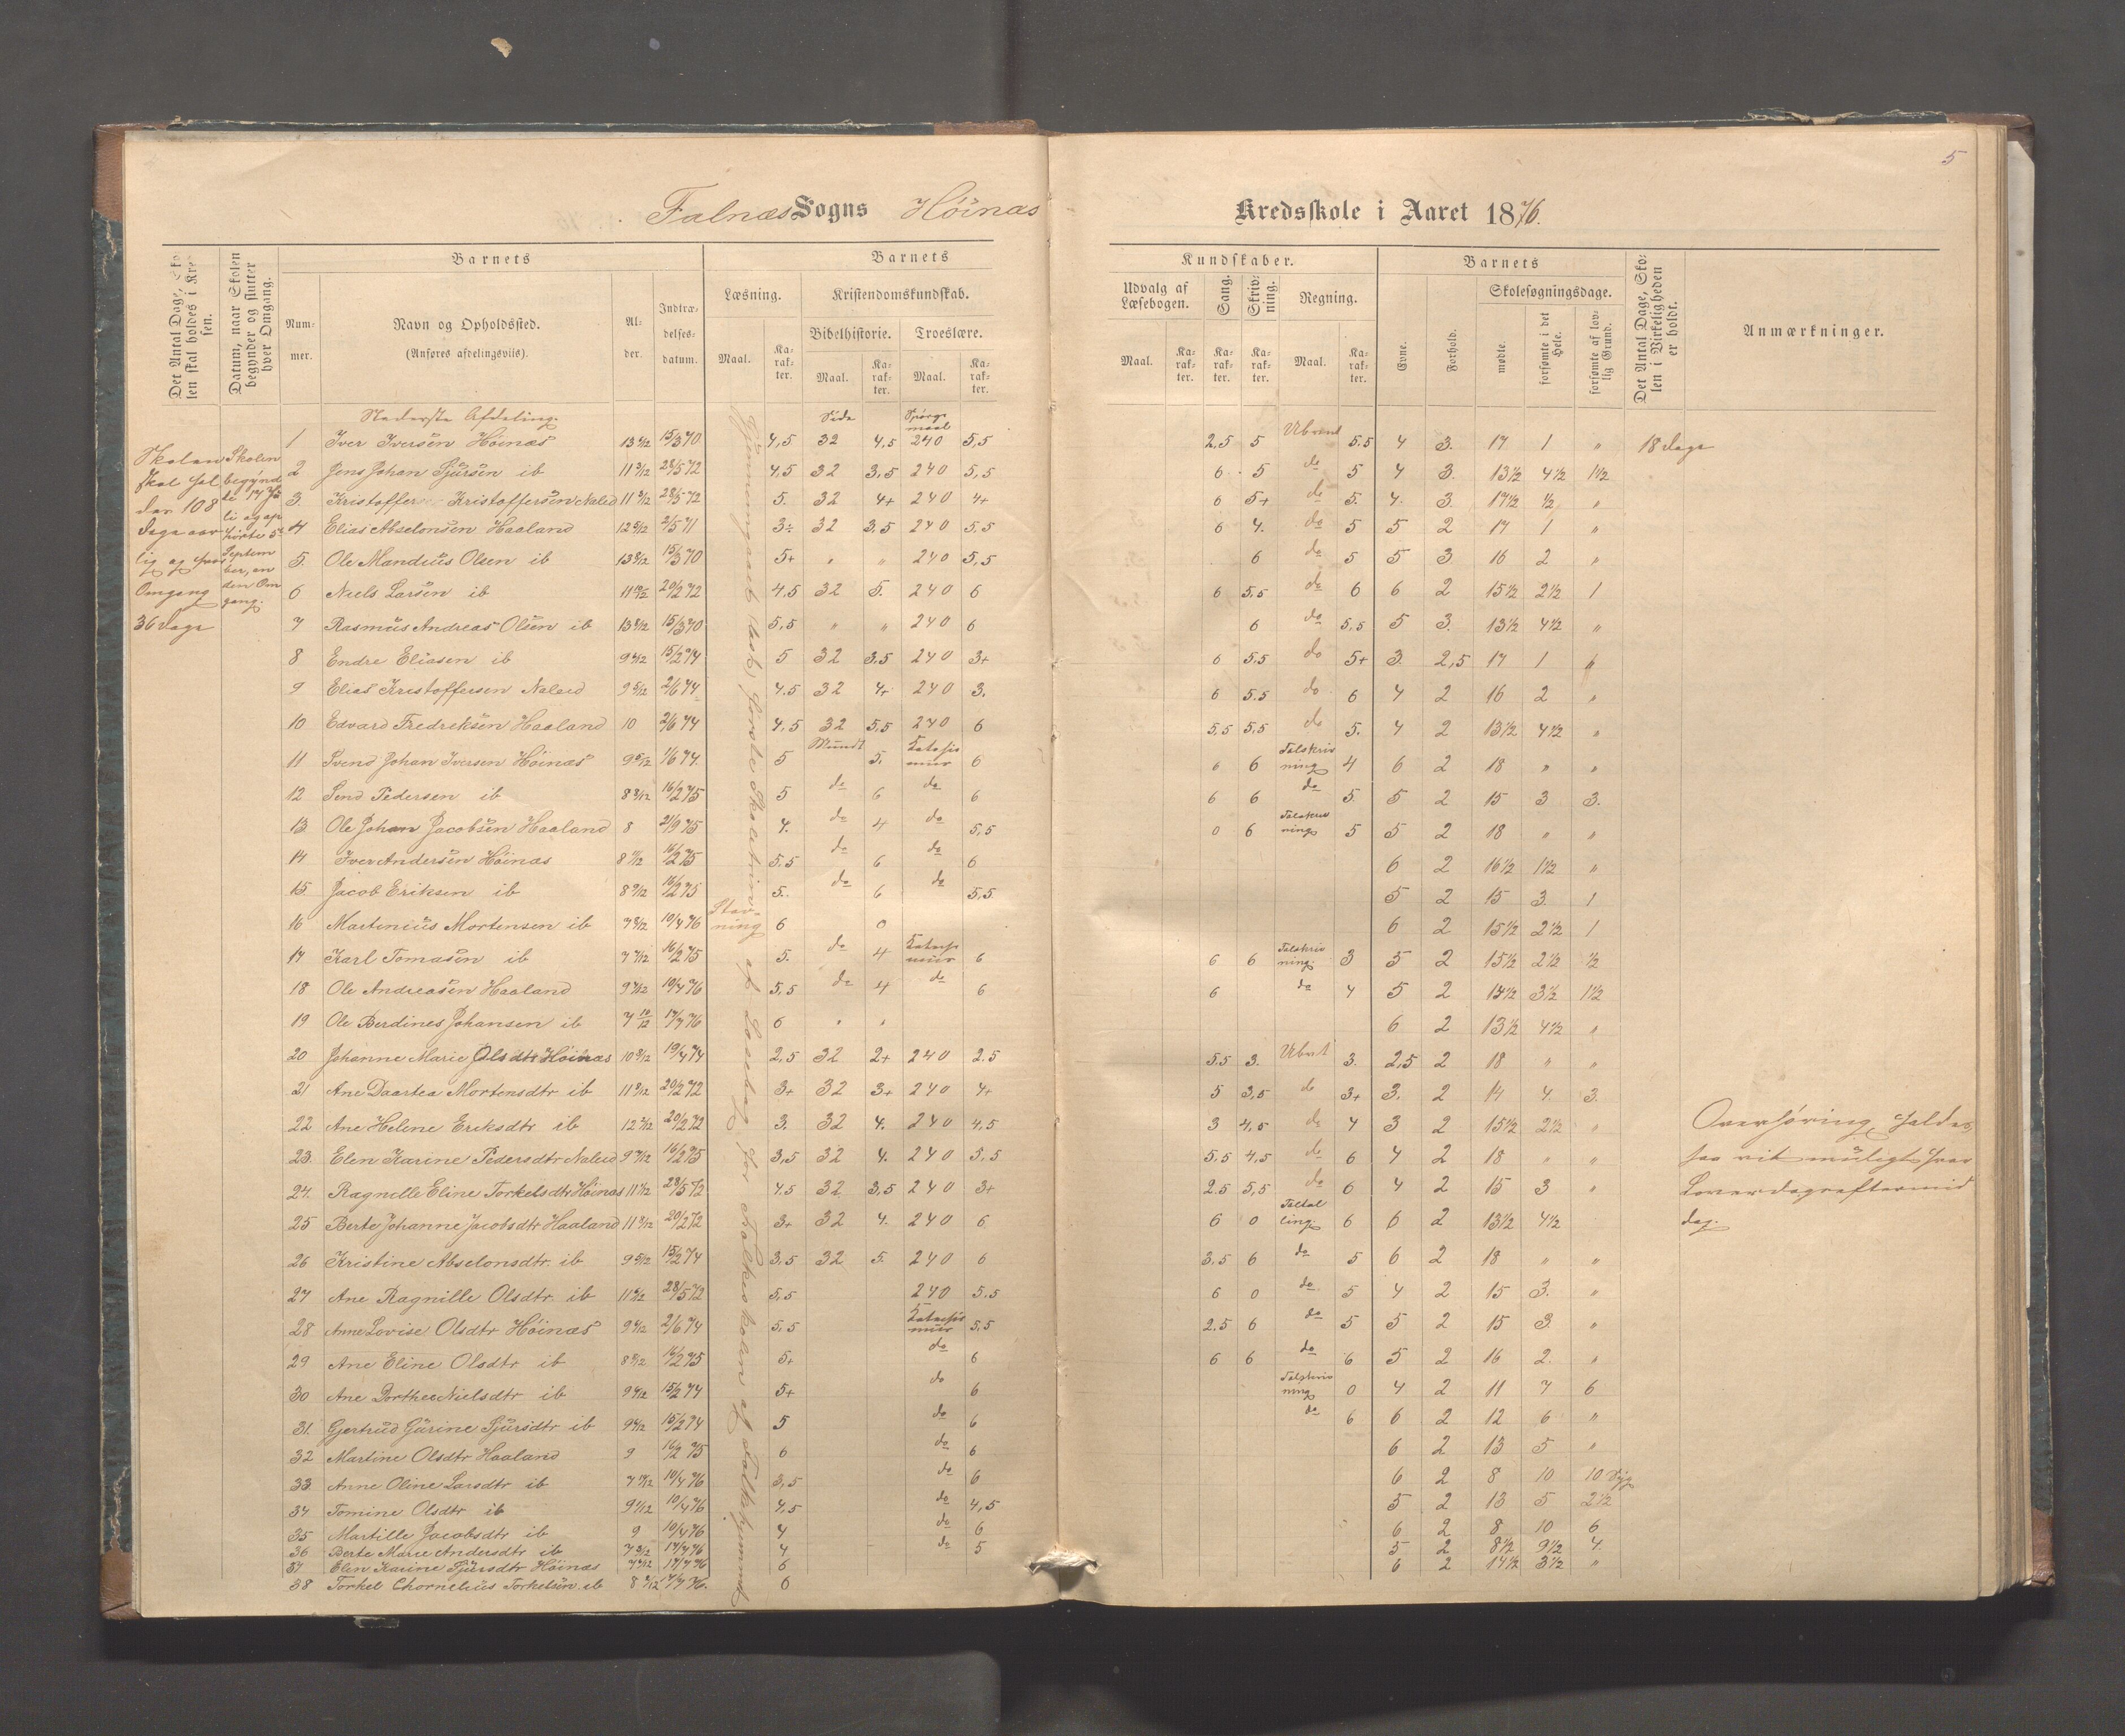 5
Falnæs Sogns Høinæs Kredsskole i Aaret 1876.
Det Antal Dage, Skolen skal holdes i Kredsen.
Datum, naar Skolen begynder og slutter hver Omgang.
Barnets
Nummer.
Navn og Opholdssted.
(Anføres afdelingsviis).
Alder.
Indtrædelsesdatum.
Barnets
Læsning.
Maal.
Karakter.
Kristendomskundskab.
Bibelhistorie.
Maal.
Karakter.
Troeslære.
Maal.
Karakter.
Kundskaber.
Udvalg af Læsebogen.
Maal.
Karakter.
Sang.
Karakter.
Skrivning.
Karakter.
Regning.
Maal.
Karakter.
Barnets
Evne.
Forhold.
Skolesøgningsdage.
mødte.
forsømte i det Hele.
forsømte af lovlig Grund.
Det Antal Dage, Skolen i Virkeligheden er holdt.
Anmærkninger.
Nederste Afdeling.
Side
Spørgsmaal
1 Iver Iversen Höinæs 13 15/3 70 4,5 32 4,5 240 5,5 2,5 5 5.5 4 3. 17 1 " 18 Dage
2 Jens Johan Sjursen ib 11 28/5 72 4.5 32 3,5 240 5,5 6 5 do 5 4 3. 13½ 4½ 1½
3. Kristoffer Kristoffersen Naleid 11 28/5 72 5. 32 4+ 240 4+ 6 5+ do 5. 4. 3. 17½ ½ "
4 Elias Abselonsen Haaland 12 2/5 71 3÷ 32 3,5 240 5.5 6 4. do 5 5 2 17 1 "
5. Ole Mandius Olsen ib 13 15/3 70 5+ " " 240 5,5 6 do 5 5 3 16 2 "
6 Niels Larsen ib 11 20/2 72 4.5 32 5. 240 6 6 5.5 do 6 6 2 15½ 2½ 1
7 Rasmus Andreas Olsen ib 13 15/3 70 5,5 " " 240 6 6 do 5,5 5 3. 13½ 4½ "
8 Endre Eliasen ib 9 15/2 74 5 32 3.5 240 3+ 6 5.5 do 5+ 3. 2,5 17 1 "
9 Elias Kristoffersen Naleid 9 2/6 74 4.5 32 4+ 240 3. 6 5.5 do 6 4 2 16 2 "
10 Edvard Fredriksen Haaland 10 2/6 74 4,5 32 5,5 240 6 5.5 5,5 do 5. 4 2 13½ 4½ "
11 Svend Johan Iversen Höinæs 9 1/6 74. 5 Mundt 5. 6 6 6 Talskrivning 4 6 2 18 " "
12 Send Pedersen ib 8 16/2 75 5 do 6 do 6 6 6 do 5. 5 2 15 3 3.
13. Ole Johan Jacobsen Haaland 8 21/9 75 4. do 4 do 5,5 0 6 Talskrivning 5 5 2 18 " "
14 Iver Andersen Höinæs 8 16/2 75 5.5 do 6 do 6 6 2 16½ 1½ "
15. Jacob Eriksen ib 8 16/2 75 5. do 6 do 5,5. 5 2 15 3. 1
16 Martinius Mortensen ib 7 10/4 76 Stavning 6 0 6 2 15½ 2½ 1
17 Karl Tomasen ib 7 16/2 75 5. do 4 6 6 6 Talskrivning 3 5 2 15½ 2½ ½
18 Ole Andreasen Haaland 9 10/4 76 5,5 do 4 do 6 6 do 4 5 2 14½ 3½ 1½
19 Ole Berdines Johansen ib 7 10/12 17/7 76 6 " " 6 2 13½ 4½ "
20 Johanne Marie Olsdtr Höinæs 10 19/4 74 2,5 32 2+ 240 2.5 5.5 3. 3. 2,5 2 18 " "
21 Ane Daartea Mortensdtr ib 11 20/2 72 3+ 32 3+ 240 4+ 5 3,5 do 3+ 3. 2 14 4. 3.
22 Ane Helene Eriksdtr ib 12 20/2 72 3. 32 4. 240 4,5 3 4,5 do 4 3 2 15½ 2½ "
23. Elen Karine Pedersdtr Naleid 9 16/2 75 3,5 32 4. 240 5,5 5.5 4,5 do 6 4 2 18 " "
24. Ragnille Eline Torkelsdtr Höinæs 11 28/5 72 4.5 32 3,5 240 3+ 2.5 5,5 do 6 4 2 15 3 "
25 Berte Johanne Jacobsdtr Haaland 11 20/2 72 3+ 32 4. 240 6 6 0 Taltælling 6 6 2 13½ 4½
26 Kristine Abselonsdtr ib 9 15/2 74 3,5 32 5. 240 6 3.5 6 do 5 6 2 18 " "
27 Ane Ragnille Olsdtr ib 11 28/5 72 5,5 240 5.5 6 0 do 5 4 2 15 3. "
28 Anne Lovise Olsdtr Höinæs 9 2/6 74 5,5 5,5 2.5 6 do 5 5 2 15 3. "
29 Ane Eline Olsdtr ib 8 16/2 75 5+ do 6 6 6 do 6 5 2 16 2. "
30 Ane Dorthea Nielsdtr ib 9 15/2 74 5+ do 6 Talskrivning 0 4 2 11 7 6
31. Gjertrud Gurine Sjursdtr ib 9 15/2 74 5 do 6 do 6 6 2 12 6 "
32 Martine Olsdtr Haaland 9 16/2 75 6 do 6 6 2 13 5 "
33. Anne Oline Larsdtr ib 7 10/4 76 3,5 do 6 6 2 8 10 10 Syg
34 Tomine Olsdtr ib 9 10/4 76 4,5 do 4,5 5 2 13 5 2½
35 Martille Jacobsdtr ib 9 10/4 76 4 do 6 6 2 8 10 6
36 Berte Marie Andersdtr ib 7 17/7 76 4 do 5 5 2 8½ 9½ 4
37 Elen Karine Sjursdtr Höinæs 7 17/7 76 6 6 2 14½ 3½ "
38 Torkel Chornelius Torkelsen ib 8 17/7 76. 6
Skolen
skal hol
des 108
dage aar
lig og hver
Omgang
36 Dage
Skolen
begynd
te 17 Ju
li og op
hörte 5te
Septem
ber, en
den Om
gang.
Overhøring holdes
saa vit muligt hver
Loverdagseftermid
dag.